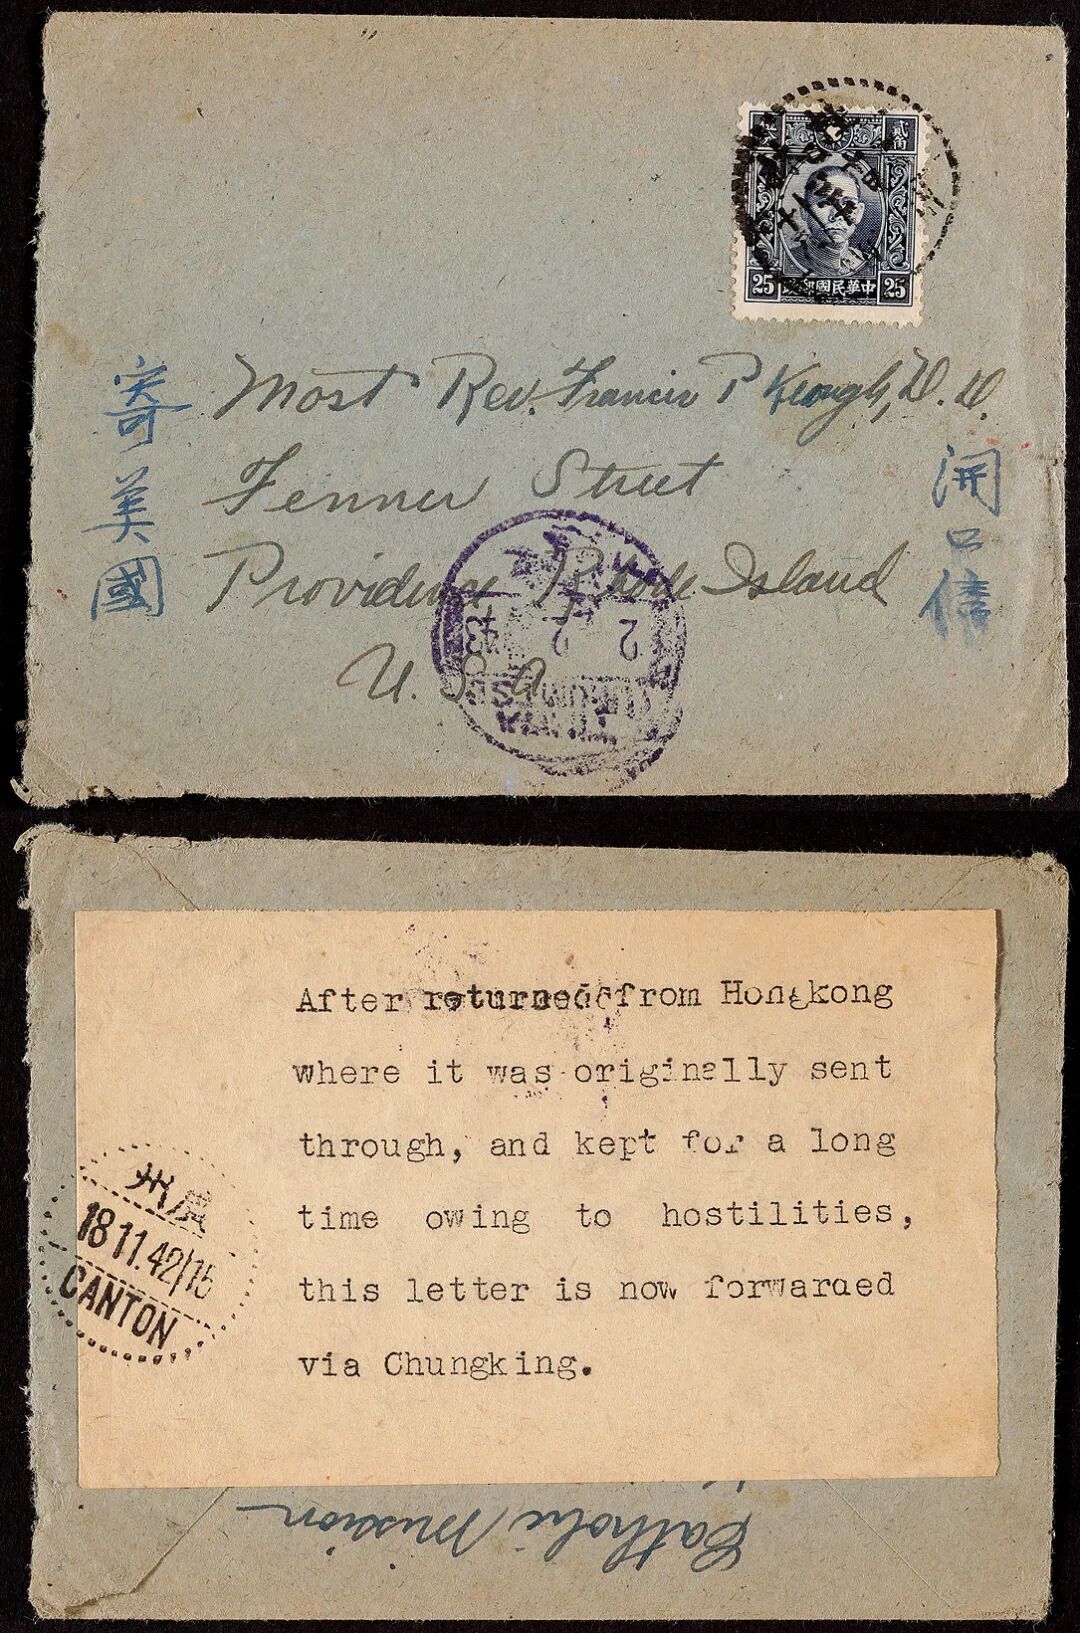 貳角
25 中華民國郵政 25
寄美國
Most Rev. Francis P Keough, D. D.
Fenner Street
Providence Rhode Island
U. S. A.
開口信
2 2 43
After returned from Hongkong
where it was originally sent
through, and kept for a long
time owing to hostilities,
this letter is now forwarded
via Chungking.
廣州
18 11.42/15
CANTON
Catholic Mission